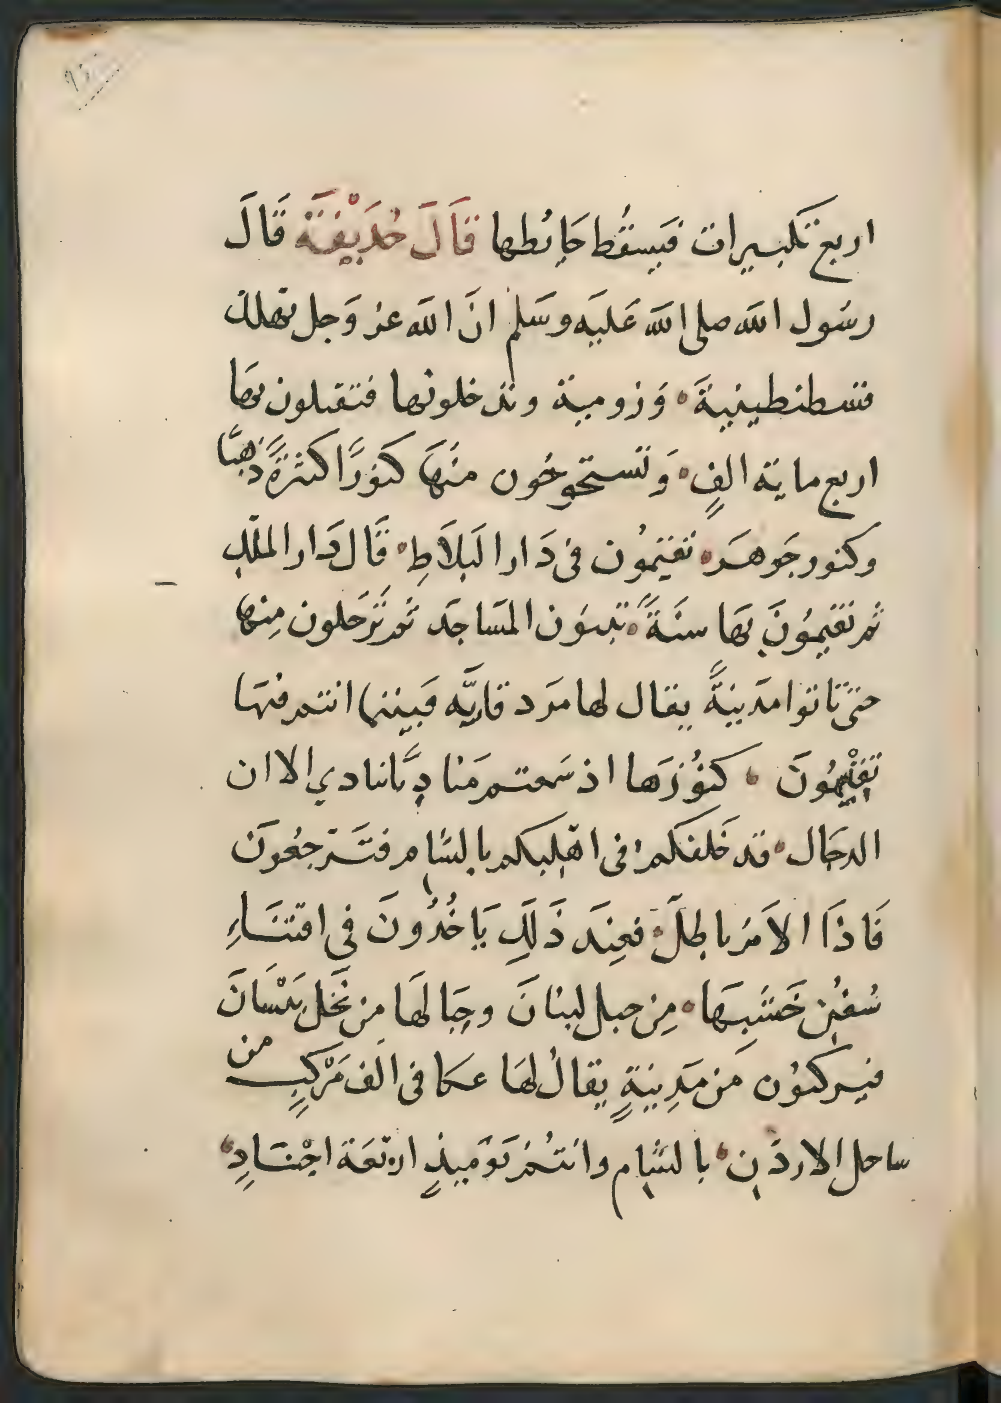 اربع تكبيرات فيسقُط حَائطها قَالَ حُذَيْفَة قَالَ
رسُول الله صلى الله عَليَه وسَلم انَ الله عز وَجل يهلك
قسطنطينيةَ وَرومية وتدخلونها فتقتلون بهَا
اربع ماية الفٍ وَتستخرجُون منهَا كنوزًا كثيرةً ذهبًا
وكنوز جَوهَر تقيمُون في دَار البَلاَطِ قَال دَار الملك
ثم تقيمُونَ بهَا سنَةً تبنون المسَاجدَ ثم تَرحَلون مِنها
حتى تاتوا مدَينةً يقال لها مَرد قاريَّه فبَينما انتم فيهَا
تَقْتَسِمُونَ كنُوزَهَا اذ سَمعتم مَناديًا ينادي الا ان
الدجَال قد خَلفكم في اهليكم بالشام فتَرجعُونَ
فَاذَا الاَمرُ باطِلَ فعِندَ ذَلَكِ يَاخُذُونَ في اقتنَاءِ
سُفُنٍ خَشَبِهَا مِن جبل لبنَانَ وحِبَالهَا مِن نَخْل بَيْسَانَ
فيركبُون مَن مَدِينةٍ يقالُ لهَا عكا في الف مَرْكبٍ من
ساحل الاردُن بالشام وانتُم يَومَيذٍ اربعَة اجْنَادٍ